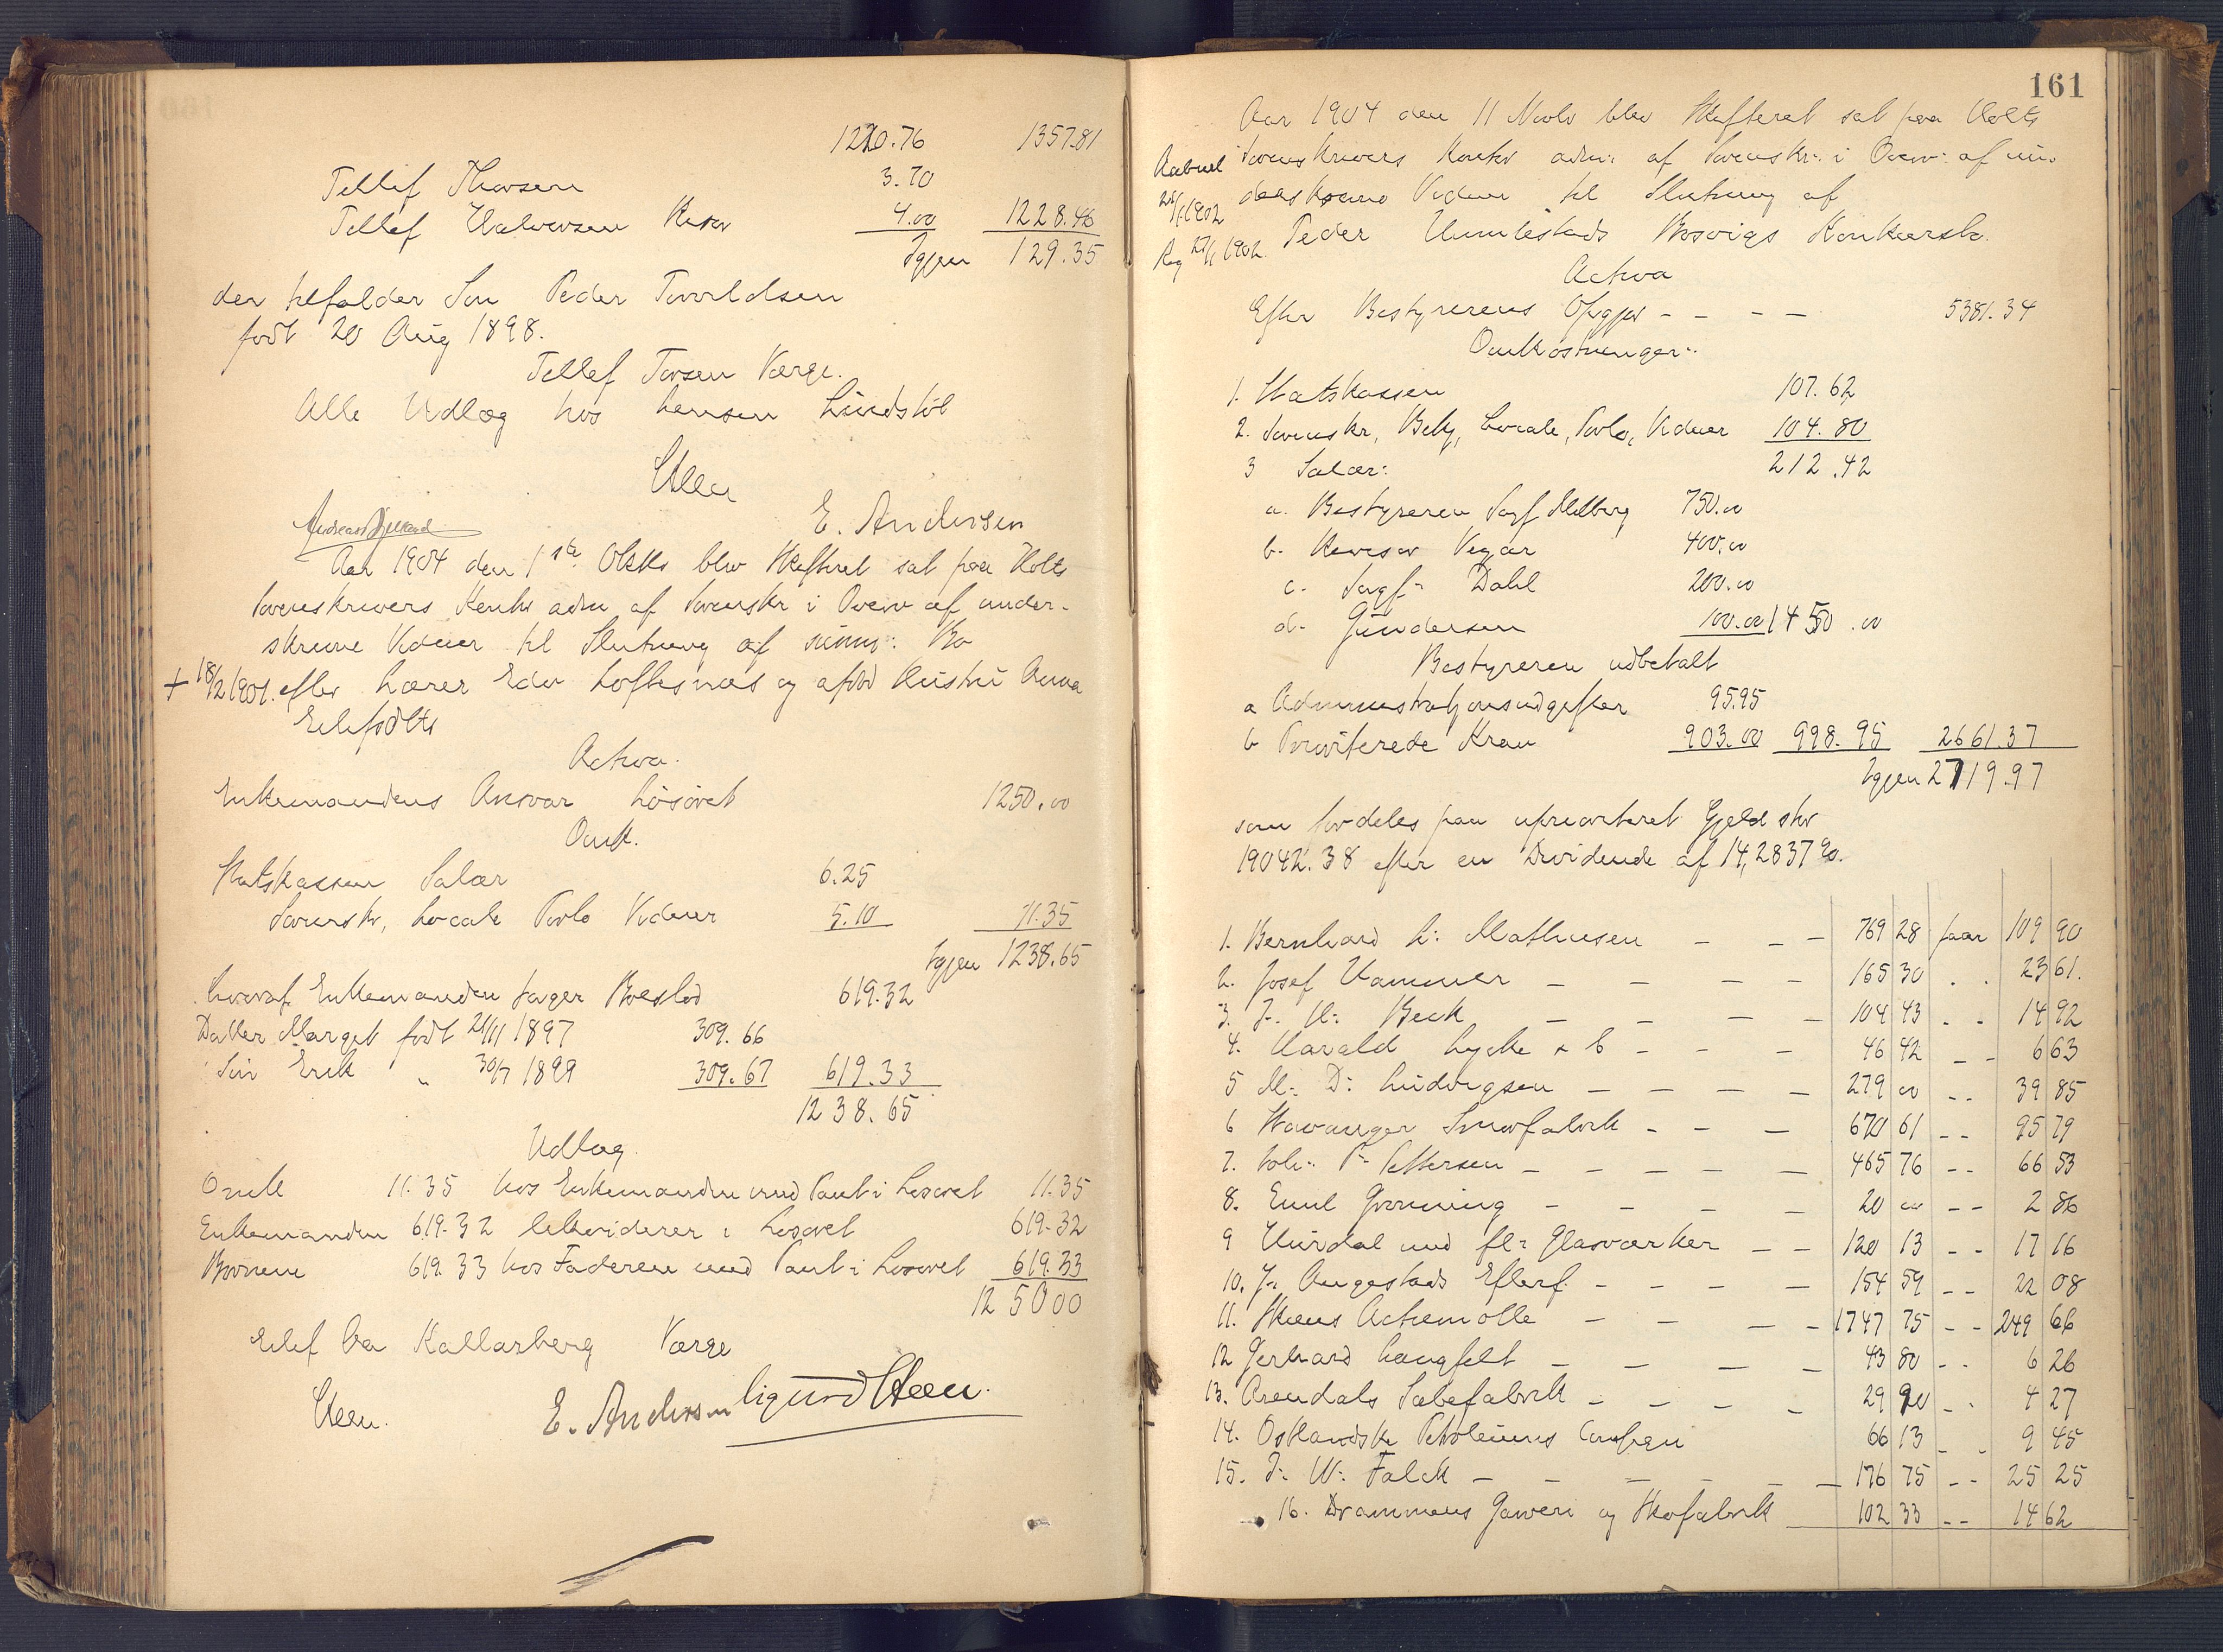 1220.76 1357.81
Tellef Thorsen 3.70
Tellef Halvorsen 4.00 1228.46
Igjen 129.35
der tilfalder Søn Peder Torvildsen
født 20 Aug 1898.
Tellef Torsen Værge.
Alle Udlæg hos Lensm Lindstøl
Steen
Andreas E. Andersen
Aar 1904 den 1ste Oktb blev Skifteret sat paa Holts
Sorenskrivers Kontor adm af Sorenskr i Overv af under-
skrevne Vidner til Slutning af Bo
+ 18/2 1901. efter Lærer Edv Loftesnæs og afdød Hustru Anna
Eilefsdtr
Activa.
Enkemandens Ansvar Løsøret 1250.00
Omk.
Statskassen Salær 6.25
Sorenskr, Locale Prolo Vidner 5.10 11.35
Igjen 1238.65
hvoraf Enkemanden tager Boeslod 619.32
Datter Margit født 21/11 1897 309.66
Søn Erik " 30/7 1899 309.67 619.33
1238.65
Udlæg
Omk 11.35 hos Enkemanden med Pant i Løsøret 11.35
Enkemanden 619.32 likviderer i Løsøret 619.32
Børnene 619.33 hos Faderen med Pant i Løsøret 619.33
125000
Eilef Aa Kallarberg Værge
Steen. E. Andersen Sigurd Steen.
161
Aar 1904 den 11 Novb blev Skifteret sat paa Holts
Sorenskrivers Kontor adm: af Sorenskr: i Overv: af un-
derskrevne Vidner til Slutning af
Peder Humlestads Bosvigs Konkursbo.
Aabnet
1902
Reg 1902.
Activa
Efter Bestyrerens Opgjør - - - - 5381.34
Omkostninger:
1. Statskassen 107.62
2. Sorenskr, Bekj, Locale, Prolo, Vidner 104.80
3 Salær: 212.42
a. Bestyreren Sagf Melberg 750.00
b. Revisor Vegar 400.00
c. Sagf: Dahl 200.00
d. Gundersen 100.00 1450.00
Bestyreren udbetalt
a Administrationsudgifter 95.95
b Prioriterede Krav 903.00 998.95 2661.37
Igjen 2719.97
som fordeles paa uprioriteret Gjeld stor
19042.38 efter en Dividende af 14,2837 %.
1. Bernhard L: Mathiesen - - - 769 28 faar 109 90
2. Josef Hammer - - - - 165 30 . . 23 61.
3. J. N: Beck - - - - 104 43 - - 14 92
4. Harald Lycke & C - - - 46 42 - - 6 63
5 M: D: Ludvigsen - - - - 279 00 - - 39 85
6 Stavanger Smørfabrik - - - 670 61 - - 95 79
7. Joh: P: Pettersen - - - - - 465 76 - - 66 53
8. Emil Grønning - - - - 20 00 - - 2 86
9 Hurdal med fl: Glasværker - - 120 13 - - 17 16
10. J: Augestads Efterf. - - - - 154 59 - - 22 08
11. Skiens Actiemølle - - - - 1747 75 - - 249 66
12 Gerhard Langfelt - - - - 43 80 - - 6 26
13. Arendals Sæbefabrik - - - - 29 90 - - 4 27
14. Østlandske Petroleums Compani 66 13 - - 9 45
15. J: W: Falck - - - - - 176 75 - - 25 25
16. Drammens Garveri og Skofabrik 102 33 - - 14 62